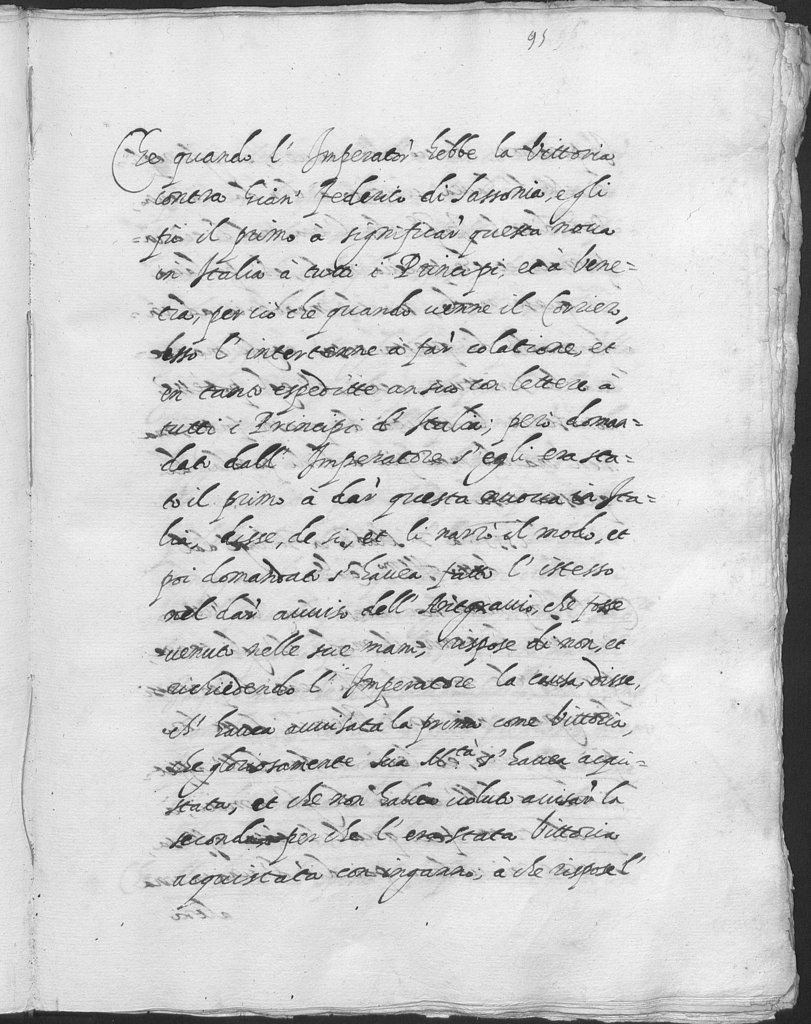 95
Che quando l' Imperator hebbe la Vittoria
contra Gian' Federico di Sassonia, egli
fù il primo à significar questa nova
in Italia à tutti i Principi, et à Vene=
tia, perciò che quando venne il Corrier,
esso l' intertenne à far colatione, et
in tanto espeditte un suo con lettere à
tutti i Principi d' Italia; però doman=
dato dall' Imperatore s' egli era sta=
to il primo à dar questa nuova in Ita=
lia, disse, de si, et li narrò il modo, et
poi domandato s' havea fatto l' istesso
nel dar avviso dell' Antgravio, che fosse
venuto nelle sue mani, rispose di non, et
richiedendo l' Imperatore la causa, disse,
ch' havea avvisata la prima come Vittoria,
che gloriosamente sua M.tà s' havea acqui=
stata, et che non havea voluto avisar la
seconda perche l' era stata Vittoria
acquistata con inganno, à che rispose l'